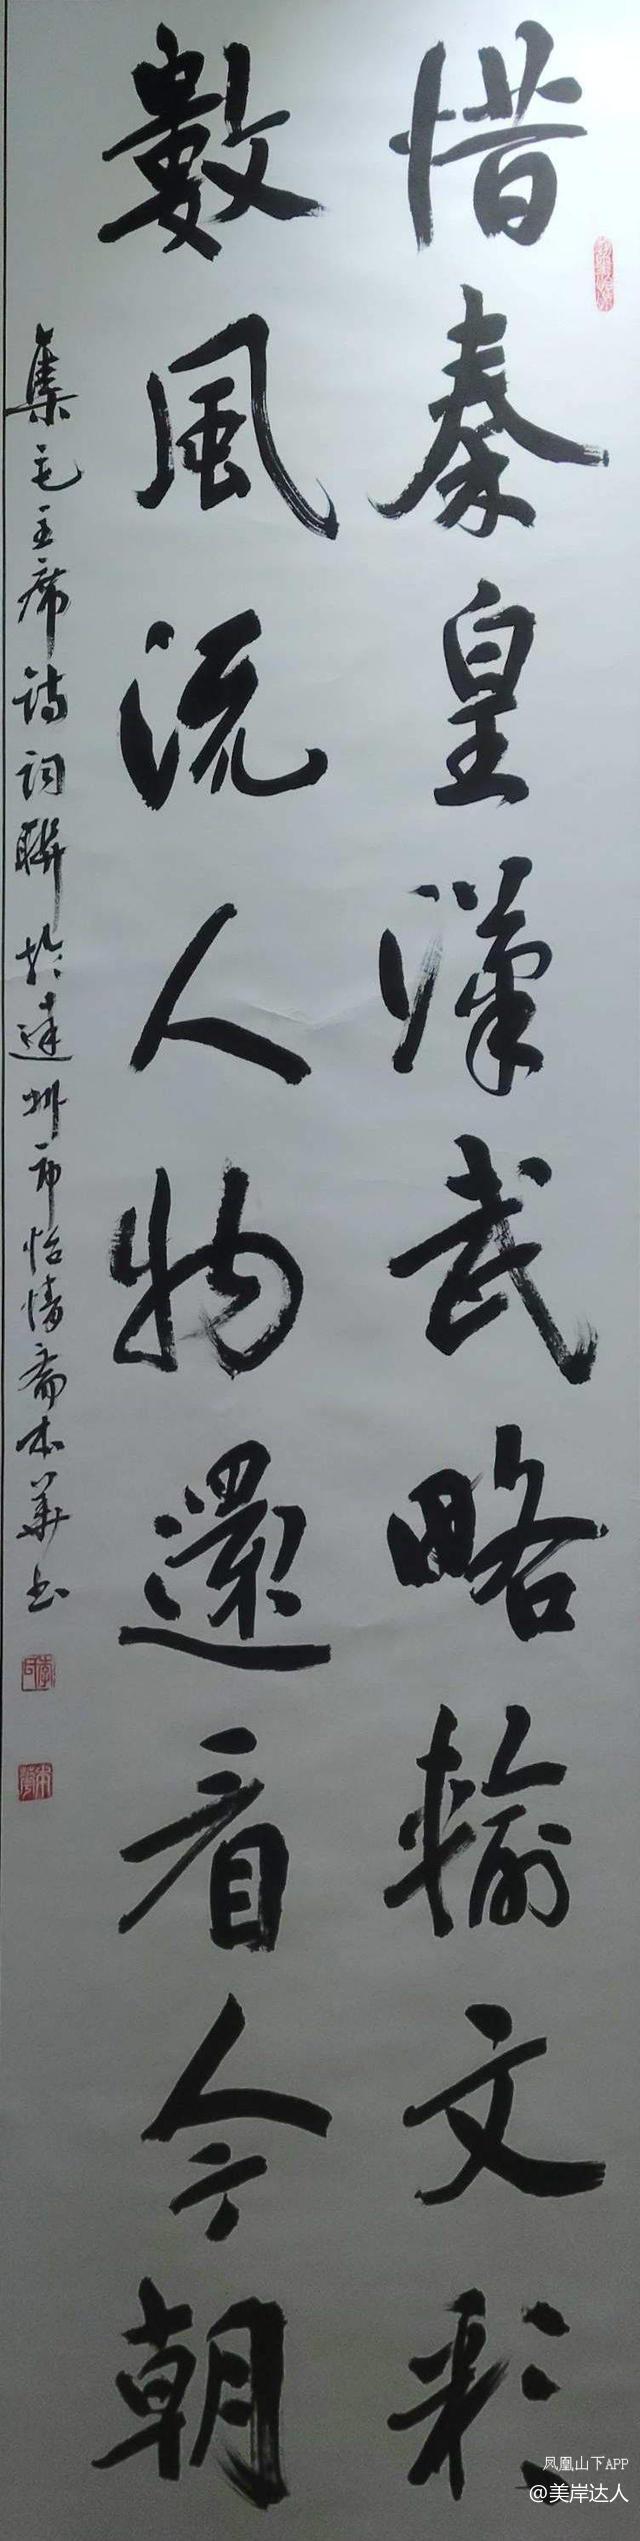 惜秦皇漢武略輸文彩
數風流人物還看今朝
集毛主席诗词聯於達州市怡情斋本華书
凤凰山下APP
@美岸达人